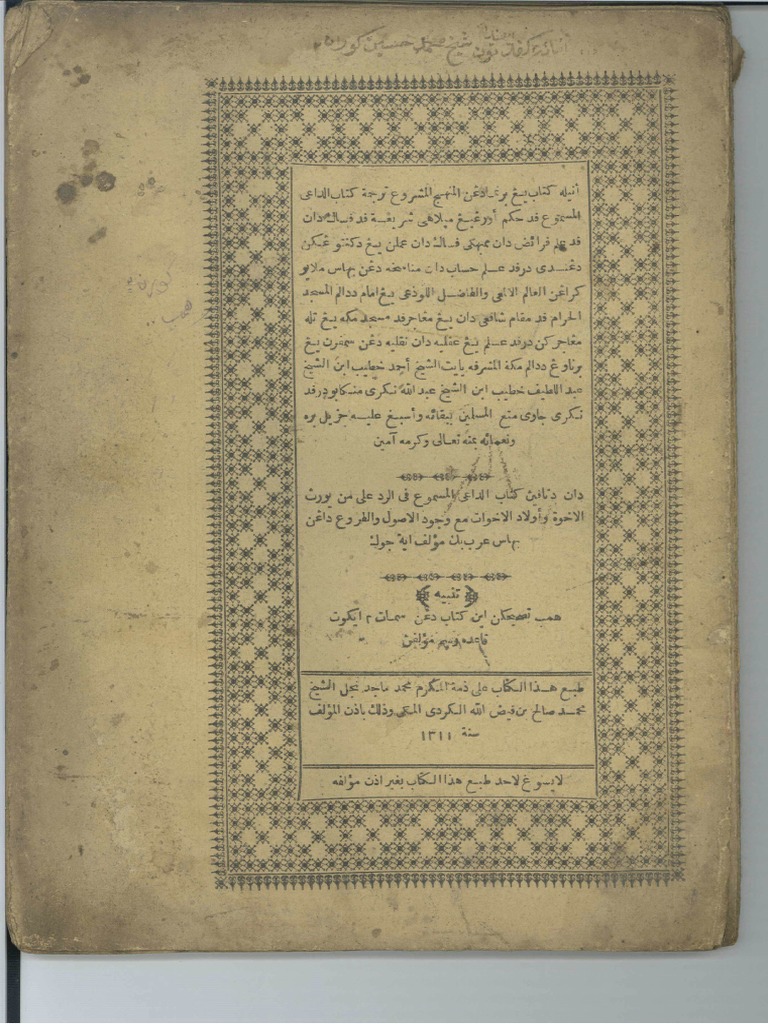 شيخ محمد حسين كوراي
اينيله كتاب يڠ برنمادڠن المنهج المشروع ترجمة كتاب الداعى
المسموع فد حكم أورڠيڠ ميلاهى شريعة فد فساك دان
فد علم فرائض دان ممبهكى فساك دان عملن يڠ دكنتوڠكن
دڠندى درفد علم حساب دان مناسخه دڠن بهاس ملايو
كراڠن العالم الالمعى والفاضل اللوذعى يڠ امام ددالم المسجد
الحرام فد مقام شافعى دان يڠ مڠاجر فد مسجد مكه يڠ تله
مڠاجركن درفد علم يڠ عقليه دان نقليه دڠن سمفرن يڠ
برناوڠ ددالم مكة المشرفه يايت الشيخ أحمد خطيب ابن الشيخ
عبد اللطيف خطيب ابن الشيخ عبد الله نكرى منڠكابو درفد
نكرى جاوى متع المسلمين ببقائه وأسبغ عليه جزيل بره
ونعمائه بمنه تعالى وكرمه آمين
دان دتافين كتاب الداعى المسموع فى الرد على من يورث
الاخوة وأولاد الاخوات مع وجود الاصول والفروع داڠن
بهاس عرب بڬ مؤلف ايه جوك
تنبيه
همب تصحيحكن اين كتاب دڠن سمات ٢ ايكوت
قاعده رسم مؤلفن
طبع هذا الكتاب على ذمة المكرم محمد ماجد نجل الشيخ
محمد صالح بن فيض الله الكردى المكى وذلك باذن المؤلف
سنة ١٣١١
لايسوغ لاحد طبع هذا الكتاب بغير اذن مؤلفه
همب